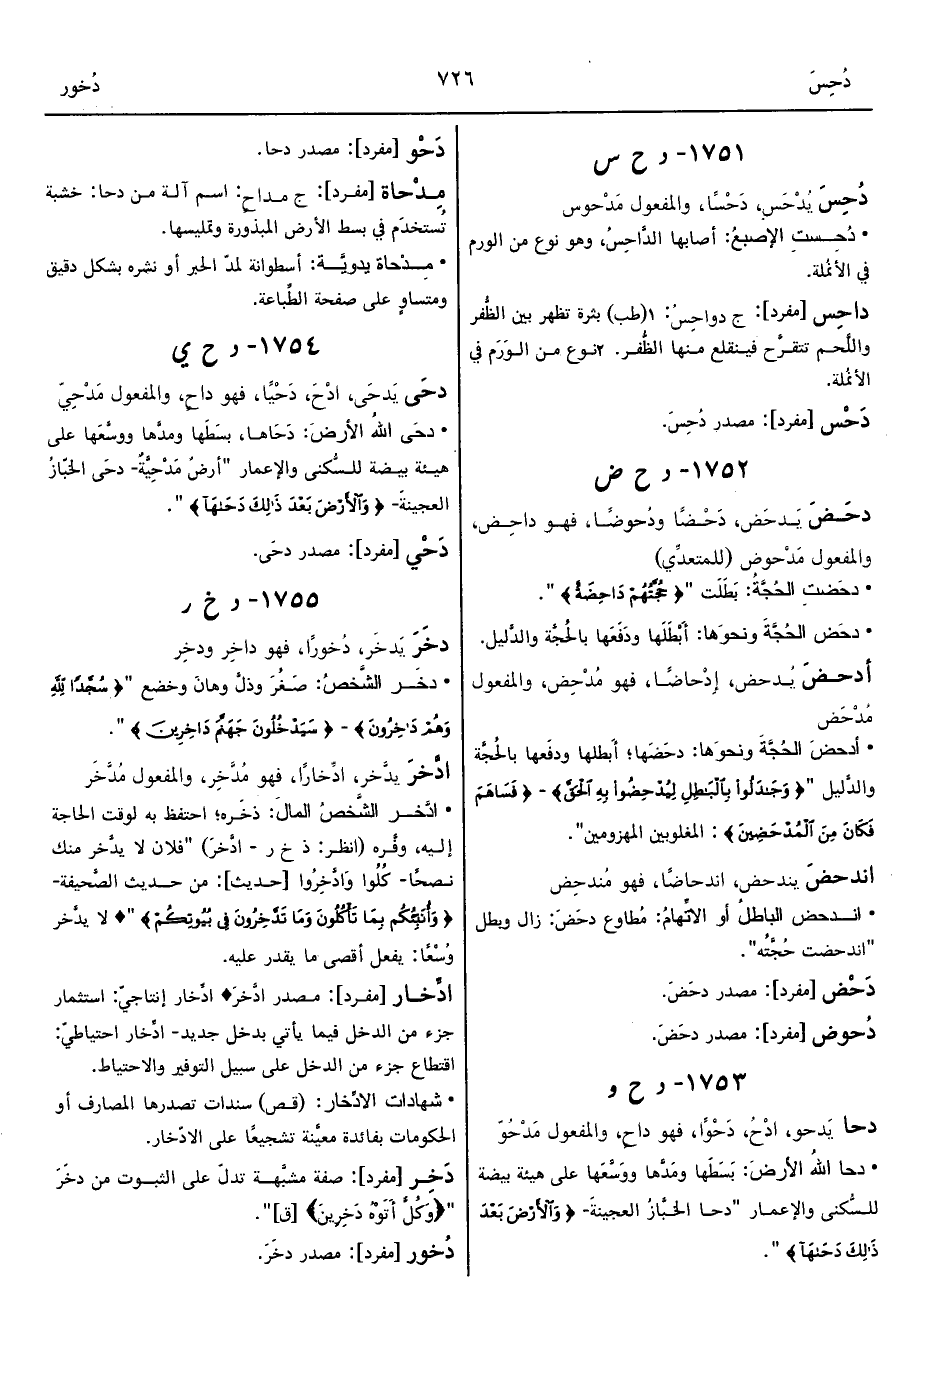 دُحِسَ
٧٢٦
دُخور
١٧٥١- د ح س
دُحِسَ يُدْحَس، دَحْسًا، والمفعول مَدْحوس
• دُحِست الإصبعُ: أصابها الدَّاحِسُ، وهو نوع من الورم
في الأنملة.
داحِس [مفرد]: ج دواحِسُ: ١(طب) بثرة تظهر بين الظُّفر
واللَّحم تتقرَّح فينقلع منها الظُّفر. ٢نوع من الوَرَم في
الأنملة.
دَحْس [مفرد]: مصدر دُحِسَ.
١٧٥٢- د ح ض
دحَضَ يَدحَض، دَحْضًا ودُحوضًا، فهو داحِض،
والمفعول مَدْحوض (للمتعدِّي)
• دحَضت الحُجَّةُ: بَطَلَت "﴿ حُجَّتُهُمْ دَاحِضَةٌ ﴾".
• دحَض الحُجَّةَ ونحوَها: أبْطَلَها ودَفَعَها بالحُجَّة والدَّليل.
أدحضَ يُدحض، إدْحاضًا، فهو مُدْحِض، والمفعول
مُدْحَض
• أدحضَ الحُجَّةَ ونحوَها: دحَضَها؛ أبطلها ودفَعها بالحُجَّة
والدَّليل "﴿ وَجَٰدَلُوا۟ بِٱلْبَٰطِلِ لِيُدْحِضُوا۟ بِهِ ٱلْحَقَّ ﴾ - ﴿ فَسَاهَمَ
فَكَانَ مِنَ ٱلْمُدْحَضِينَ ﴾ : المغلوبين المهزومين".
اندحضَ يندحض، اندحاضًا، فهو مُندحِض
• اندحض الباطلُ أو الاتِّهامُ: مُطاوع دحَضَ: زال وبطل
"اندحضت حُجَّتُه".
دَحْض [مفرد]: مصدر دحَضَ.
دُحوض [مفرد]: مصدر دحَضَ.
١٧٥٣- د ح و
دحا يَدحو، ادْحُ، دَحْوًا، فهو داحٍ، والمفعول مَدْحُوّ
• دحا اللهُ الأرضَ: بَسَطَها ومَدَّها ووَسَّعَها على هيئة بيضة
للسُّكنى والإعمار "دحا الخبَّازُ العجينةَ- ﴿ وَٱلْأَرْضَ بَعْدَ
ذَٰلِكَ دَحَىٰهَآ ﴾".
دَحْو [مفرد]: مصدر دحا.
مِدْحاة [مفرد]: ج مداحٍ: اسم آلة من دحا: خشبة
تُستخدَم في بسط الأرض المبذورة وتمليسها.
• مِدْحاة يدويَّة: أسطوانة لمدّ الحبر أو نشره بشكل دقيق
ومتساوٍ على صفحة الطِّباعة.
١٧٥٤- د ح ي
دحَى يَدحَى، ادْحَ، دَحْيًا، فهو داحٍ، والمفعول مَدْحِيّ
• دحَى اللهُ الأرضَ: دَحَاها، بسَطَها ومدَّها ووسَّعَها على
هيئة بيضة للسُّكنى والإعمار "أرضٌ مَدْحِيَّةٌ- دحَى الخبَّازُ
العجينةَ- ﴿ وَٱلْأَرْضَ بَعْدَ ذَٰلِكَ دَحَىٰهَآ ﴾".
دَحْي [مفرد]: مصدر دحَى.
١٧٥٥- د خ ر
دخَرَ يَدخَر، دُخورًا، فهو داخِر ودخِر
• دخَر الشَّخصُ: صَغُرَ وذلّ وهانَ وخضع "﴿ سُجَّدًا لِلَّهِ
وَهُمْ دَٰخِرُونَ ﴾ - ﴿ سَيَدْخُلُونَ جَهَنَّمَ دَاخِرِينَ ﴾".
ادَّخرَ يدَّخر، ادِّخارًا، فهو مُدَّخِر، والمفعول مُدَّخَر
• ادَّخر الشَّخصُ المالَ: ذخَره؛ احتفظ به لوقت الحاجة
إليه، وفَّره (انظر: ذ خ ر - ادَّخرَ) "فلان لا يدَّخر منك
نصحًا- كُلُوا وَادَّخِرُوا [حديث]: من حديث الصَّحيفة-
﴿ وَأُنَبِّئُكُم بِمَا تَأْكُلُونَ وَمَا تَدَّخِرُونَ فِي بُيُوتِكُمْ ﴾"♦ لا يدَّخر
وُسْعًا: يفعل أقصى ما يقدر عليه.
ادِّخار [مفرد]: مصدر ادَّخرَ♦ ادِّخار إنتاجيّ: استثمار
جزء من الدخل فيما يأتي بدخل جديد- ادِّخار احتياطيّ:
اقتطاع جزء من الدخل على سبيل التوفير والاحتياط.
• شهادات الادِّخار: (قص) سندات تصدرها المصارف أو
الحكومات بفائدة معيَّنة تشجيعًا على الادّخار.
دَخِر [مفرد]: صفة مشبَّهة تدلّ على الثبوت من دخَرَ
"﴿وَكُلٌّ أَتَوْهُ دَخِرِينَ﴾ [ق]".
دُخور [مفرد]: مصدر دخَرَ.